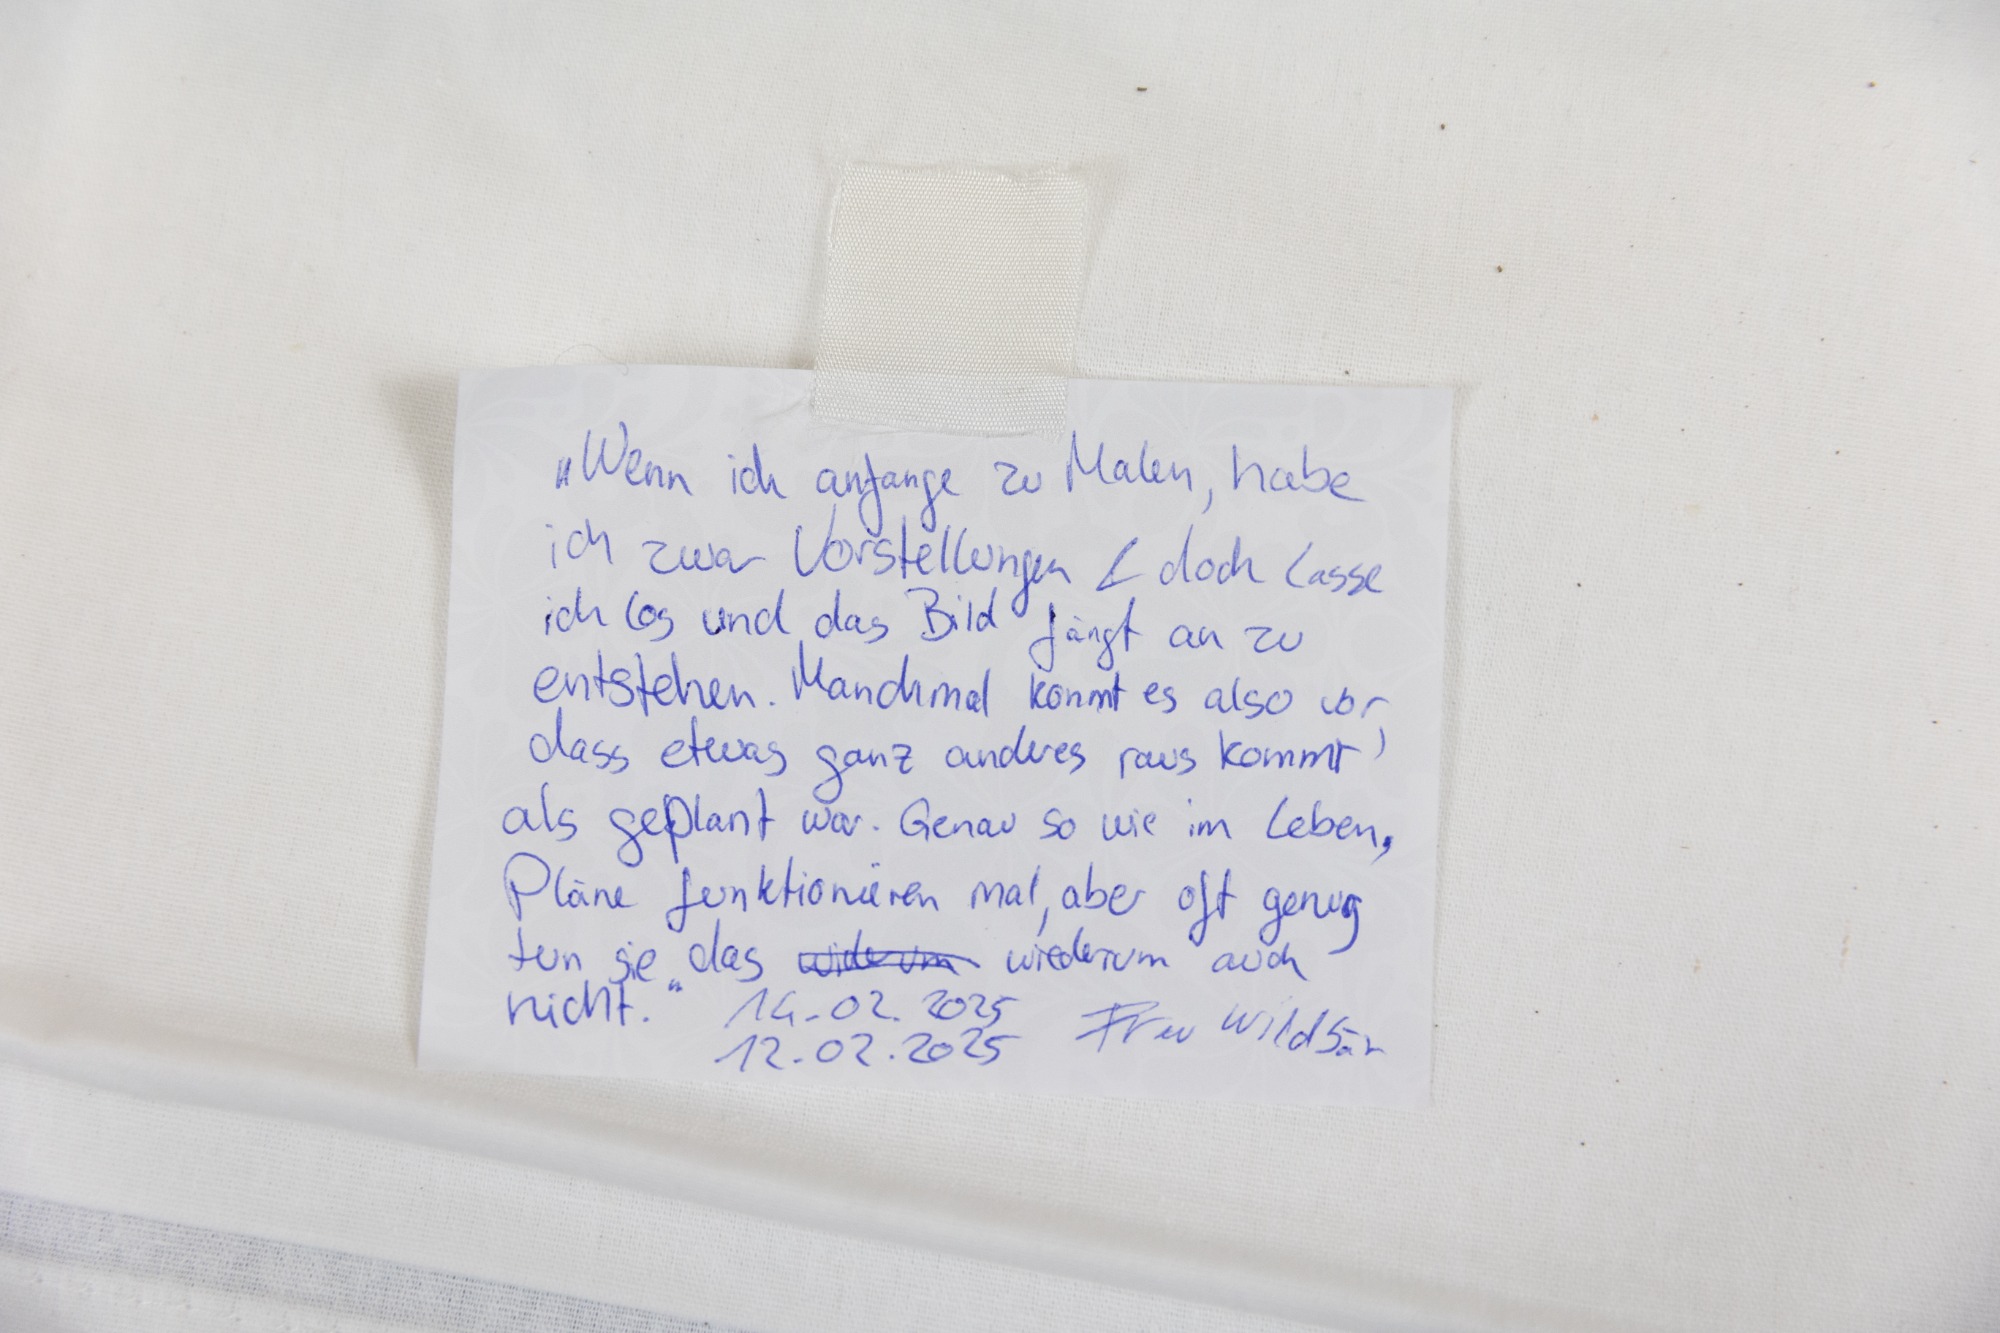 „Wenn ich anfange zu Malen, habe
ich zwar Vorstellungen & doch lasse
ich los und das Bild fängt an zu
entstehen. Manchmal kommt es also vor,
dass etwas ganz anderes raus kommt
als geplant war. Genau so wie im Leben,
Pläne funktionieren mal, aber oft genug
tun sie das widerum wiederum auch
nicht.“ 14.02.2025 Frau Wildbär
12.02.2025